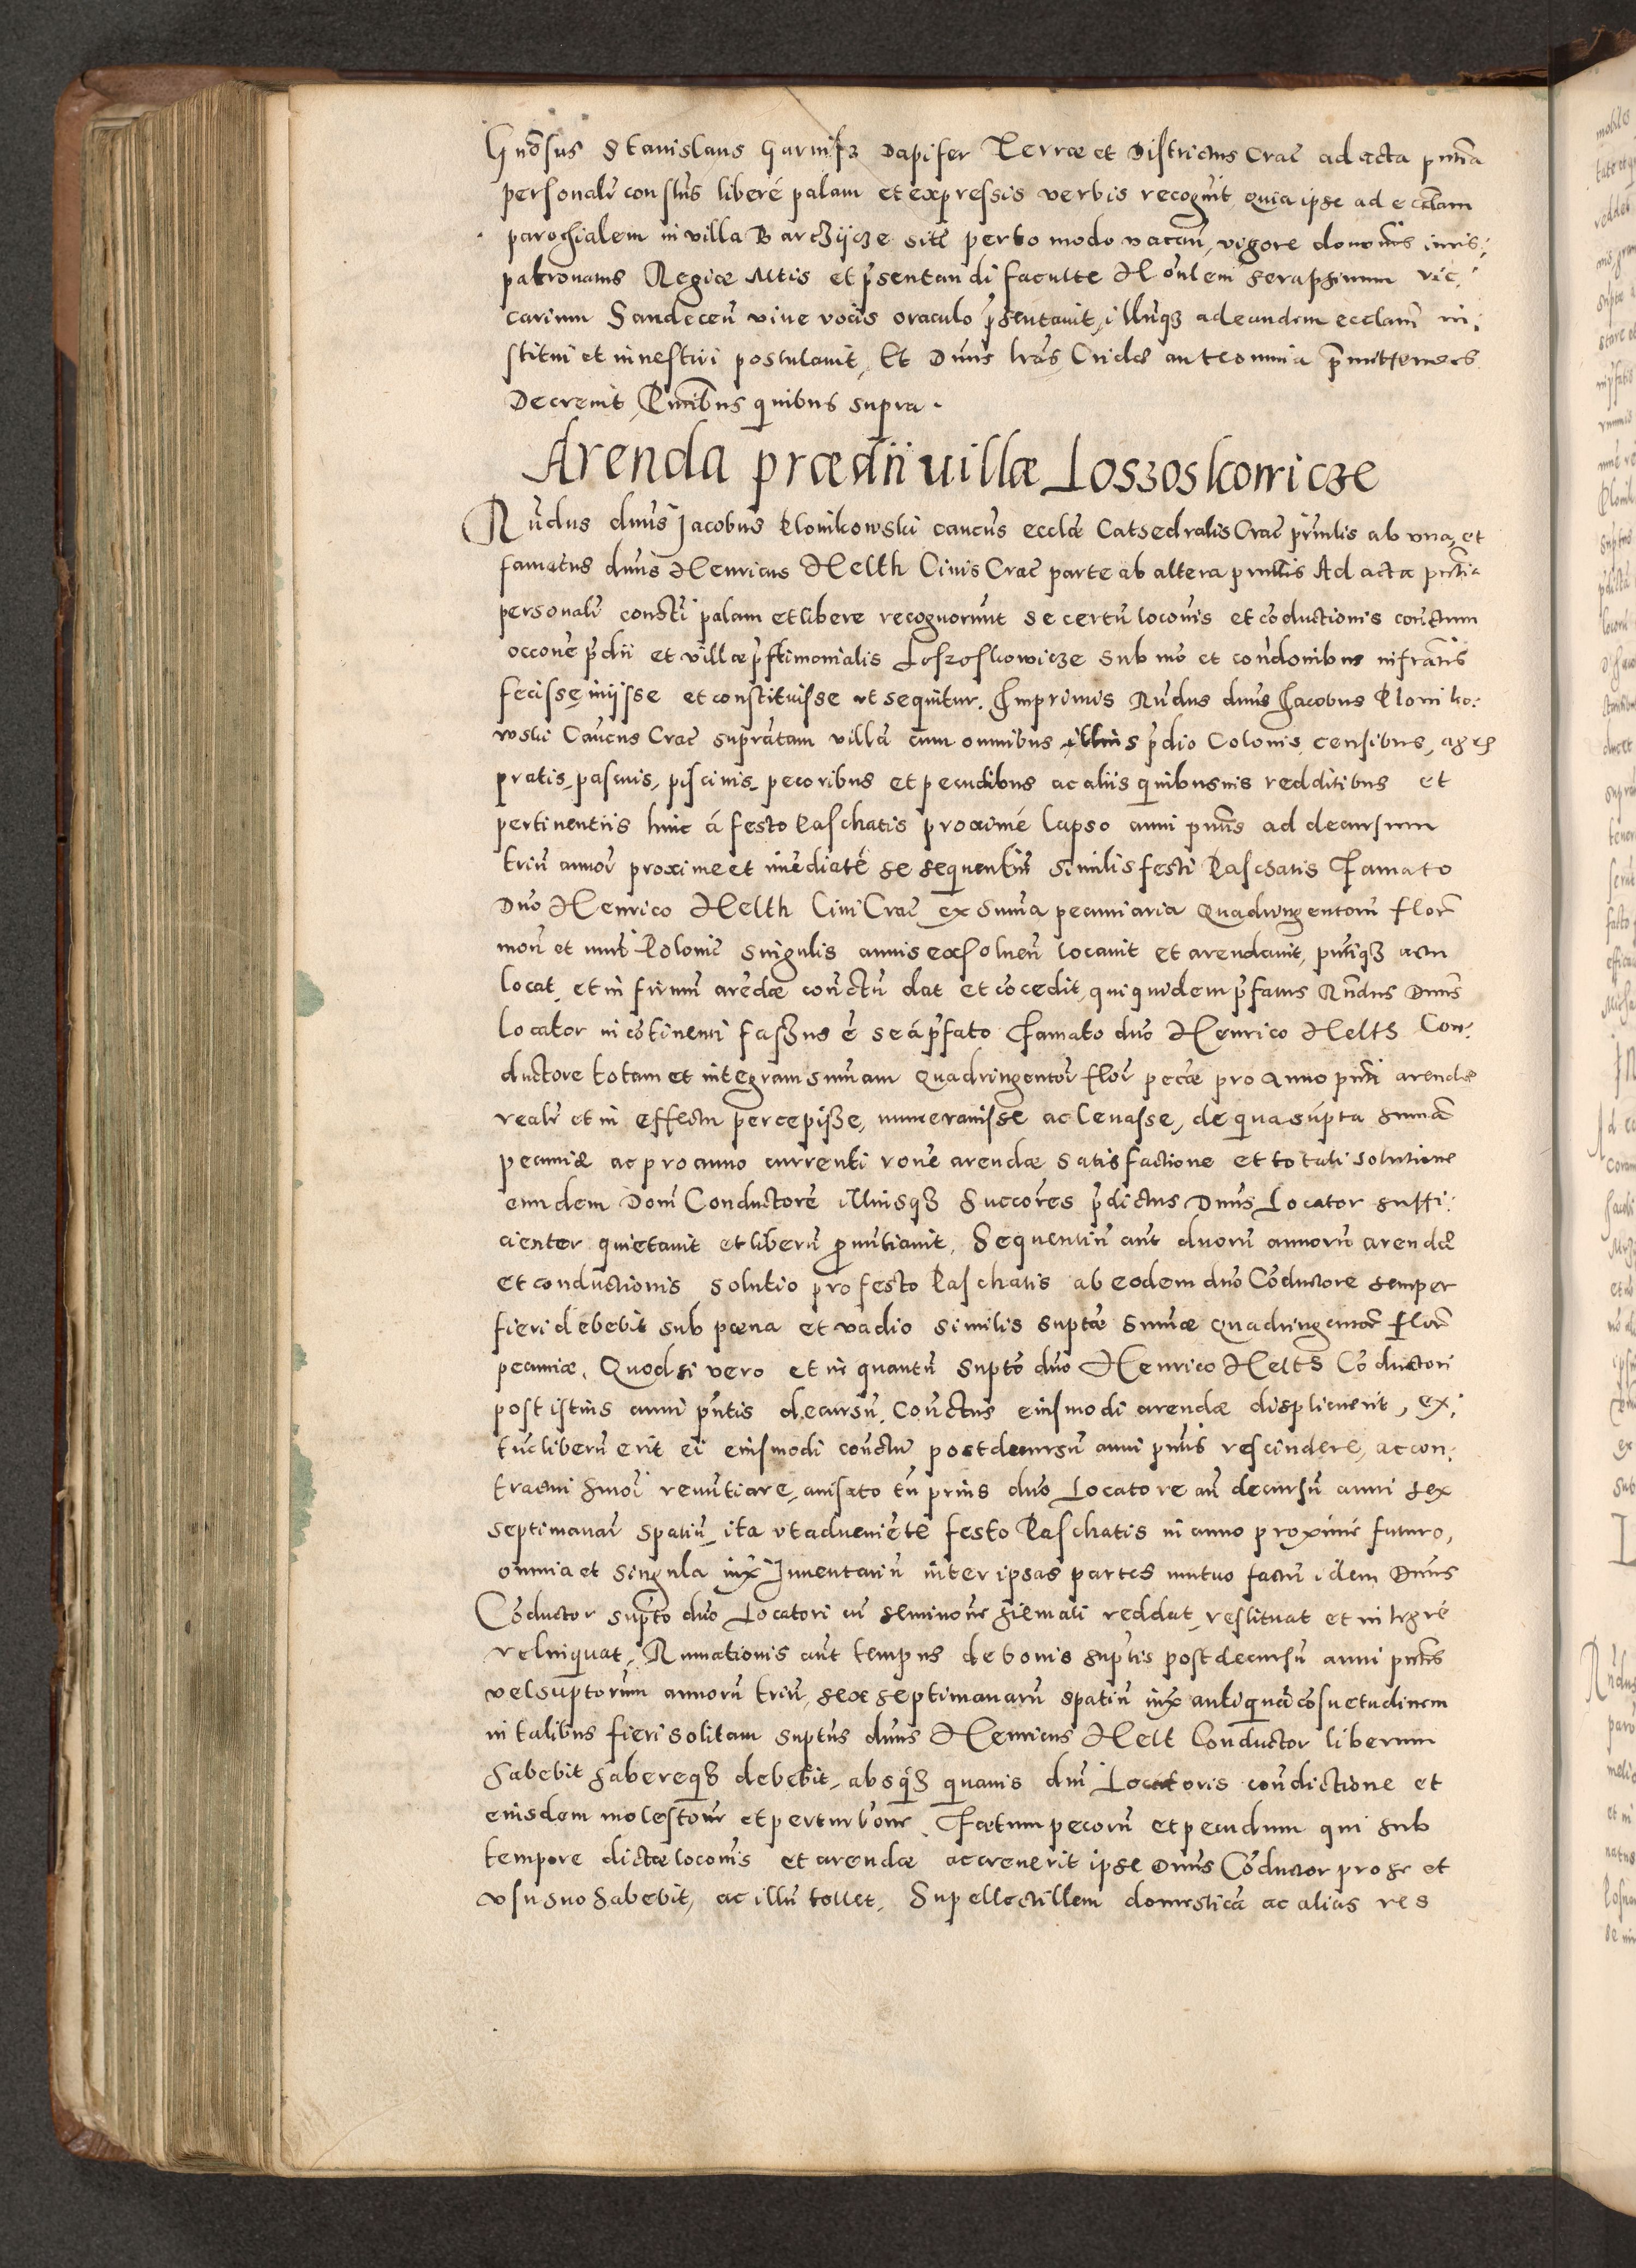 Gnosus Stanislaus Garnisz Dapifer Terræ et Districtus Crac ad acta pntia
personalr constus liberé palam et expressis verbis recognit quia ipse ad ecclam
parochialem in villa Barcziicze site perto modo vacan, vigore donnis iuris:
patronatus Regiæ Mtis et psentandi faculte Honlem Seraphinum vic:
carium Sandecen vive vocis oraculo psentauit, illumqz ad eandem ecclam in:
stitui et inuestiri postulauit, Et Dnus lras Cridæ ante omnia pmittendas
Decreuit, Pntibus quibus supra.
Arenda prædii uillæ Loszoskowicze
Rndus dnus Jacobus Klonikowski cancus ecclæ Cathedralis Crac principalis ab vna, et
famatus dnus Henricus Helth Ciuis Crac parte ab altera prntibus Ad acta pntia
personalr constti palam et libere recognorunt se certu loconis et coductionis contctum
occone pdii et villæ pstimonialis Loszoskowicze sub mo et condonibus infratis
fecisse, iniisse et constituisse ut sequitur. Imprimis Rndus dnus Jacobus Kloniko:
wski Cancus Crac supratam villa cum omnibus illius pdio Colonis, censibus, agris
pratis, pascuis, piscinis, pecoribus et pecudibus ac aliis quibusuis redditibus et
pertinentiis hinc á festo Paschatis proximé lapso anni pntis ad decursum
triu annor proxime et imediaté se sequentiu similis festi Paschatis Famato
Dno Henrico Helth Ciui Crac ex Suma pecuniaria Quadringentoru flor
mon et nuri Polonic singulis annis exsoluen locauit et arendauit, pntiqz actu
locat, et in firmu aredæ contctu dat et cocedit, qui quidem pfatus Rndus Dnus
locator in cotinenti fassus é se á pfato Famato dno Henrico Helth Con:
ductore totam et integram sumam Quadringentor flor pecæ pro anno pnti arendæ
realr et in effectu percepisse, numerauisse ac leuasse, de qua supta suma
pecuniæ ac pro anno currenti rone arendæ satisfactione et totali solutione
eundem Dom Conductore illiusqz Succores pdictus Dnus Locator suffi:
cienter quietauit et liberu pnutiauit. Sequentiu aut duoru annoru arendæ
et conductionis solutio pro festo Paschatis ab eodem dno Coductore semper
fieri debebit sub poena et vadio similis suptæ Sumæ Quadringentor flor
pecuniæ. Quod si vero et in quantu supto dno Henrico Helth Coductori
post istius anni pntis decursu, Contctus eiusmodi arendæ displicuerit, ex:
tuc liberu erit ei eiusmodi contctu post decursu anni pntis rescindere, ac con:
tractui hmoi renutiare, auisato tn prius dno Locatore an decursu anni sex
septimanar spatiu, ita vt adueniete festo Paschatis in anno proximé futuro,
omnia et singula iux Inuentariu inter ipsas partes mutuo factu idem Dnus
Coductor supto dno Locatori cu seminone hiemali reddat, restituat et integré
relinquat, Rumationis aut tempus de bonis suptis post decursu anni pntis
vel suptorum annoru triu, sex septimanaru spatiu iux antiqua cosuetudinem
in talibus fieri solitam suptus dnus Henricus Helt Conductor liberum
habebit habereqz debebit, absqz quauis dni Locatoris condictione et
eiusdem molestone et perturbone. Fœtum pecoru et pecudum qui sub
tempore dictæ loconis et arendæ accreuerit ipse Dnus Coductor pro se et
vsu suo habebit, ac illu tollet. Supellectillem domestica ac alias res